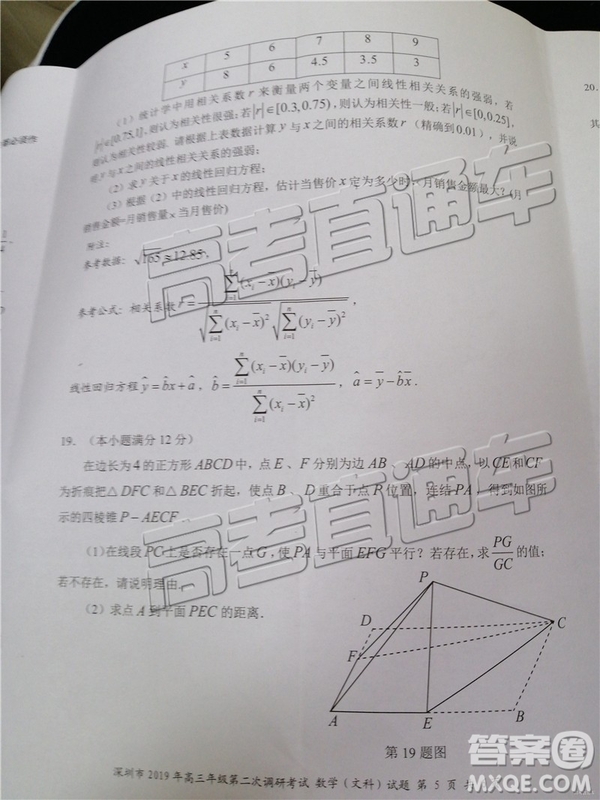 x 5 6 7 8 9
y 8 6 4.5 3.5 3
20.
(1)统计学中用相关系数r来衡量两个变量之间线性相关关系的强弱,若
|r|∈[0.75,1],则认为相关性很强;若|r|∈[0.3,0.75),则认为相关性一般;若|r|∈[0,0.25],
则认为相关性较弱.请根据上表数据计算y与x之间的相关系数r(精确到0.01),并说
明y与x之间的线性相关关系的强弱;
(2)求y关于x的线性回归方程;
(3)根据(2)中的线性回归方程,估计当售价x定为多少时,月销售金额最大?(月
销售金额=月销售量×当月售价)
附注:
参考数据:√165≈12.85,
参考公式:相关系数r=∑(i=1..n)(xᵢ-x̄)(yᵢ-ȳ)/(√∑(i=1..n)(xᵢ-x̄)² √∑(i=1..n)(yᵢ-ȳ)²),
线性回归方程ŷ=b̂x+â,b̂=∑(i=1..n)(xᵢ-x̄)(yᵢ-ȳ)/∑(i=1..n)(xᵢ-x̄)²,â=ȳ-b̂x̄.
19.(本小题满分12分)
在边长为4的正方形ABCD中,点E、F分别为边AB、AD的中点,以CE和CF
为折痕把△DFC和△BEC折起,使点B、D重合于点P位置,连结PA,得到如图所
示的四棱锥P-AECF.
(1)在线段PC上是否存在一点G,使PA与平面EFG平行?若存在,求PG/GC的值;
若不存在,请说明理由.
(2)求点A到平面PEC的距离.
P
D
C
F
A
E
B
第19题图
深圳市2019年高三年级第二次调研考试 数学(文科)试题 第5页
高考直通车
高考直通车
答案圈
MXQE.COM